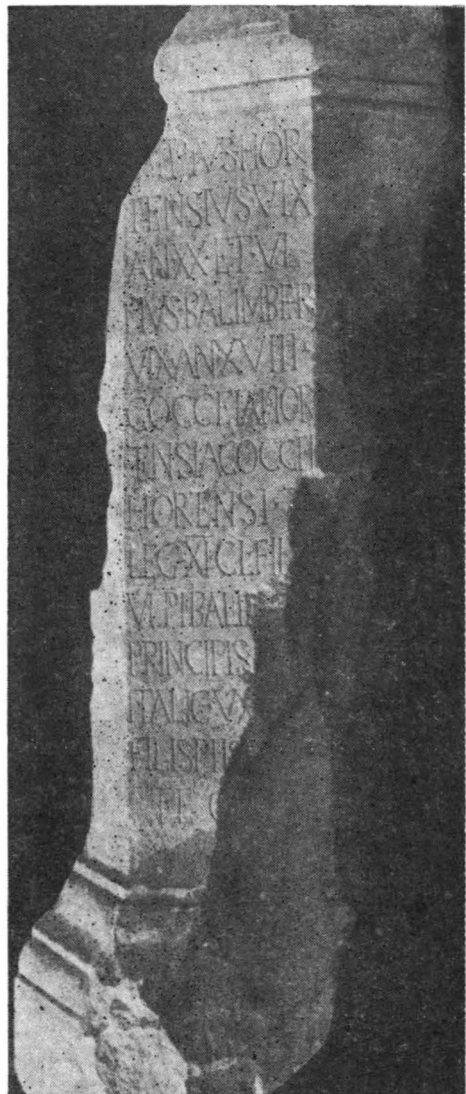 PIVS HOR
TENSIVS VIX
AN XX · ET · VL
PIVS BALIMBER
VIX AN XVIII
COCCEIA HOR
TENSIA COCCEI
HORENSI
LEG · XI · CL · FIL
VLPI BALI
PRINCIPIS
ITALIC V
FILIS PIIS